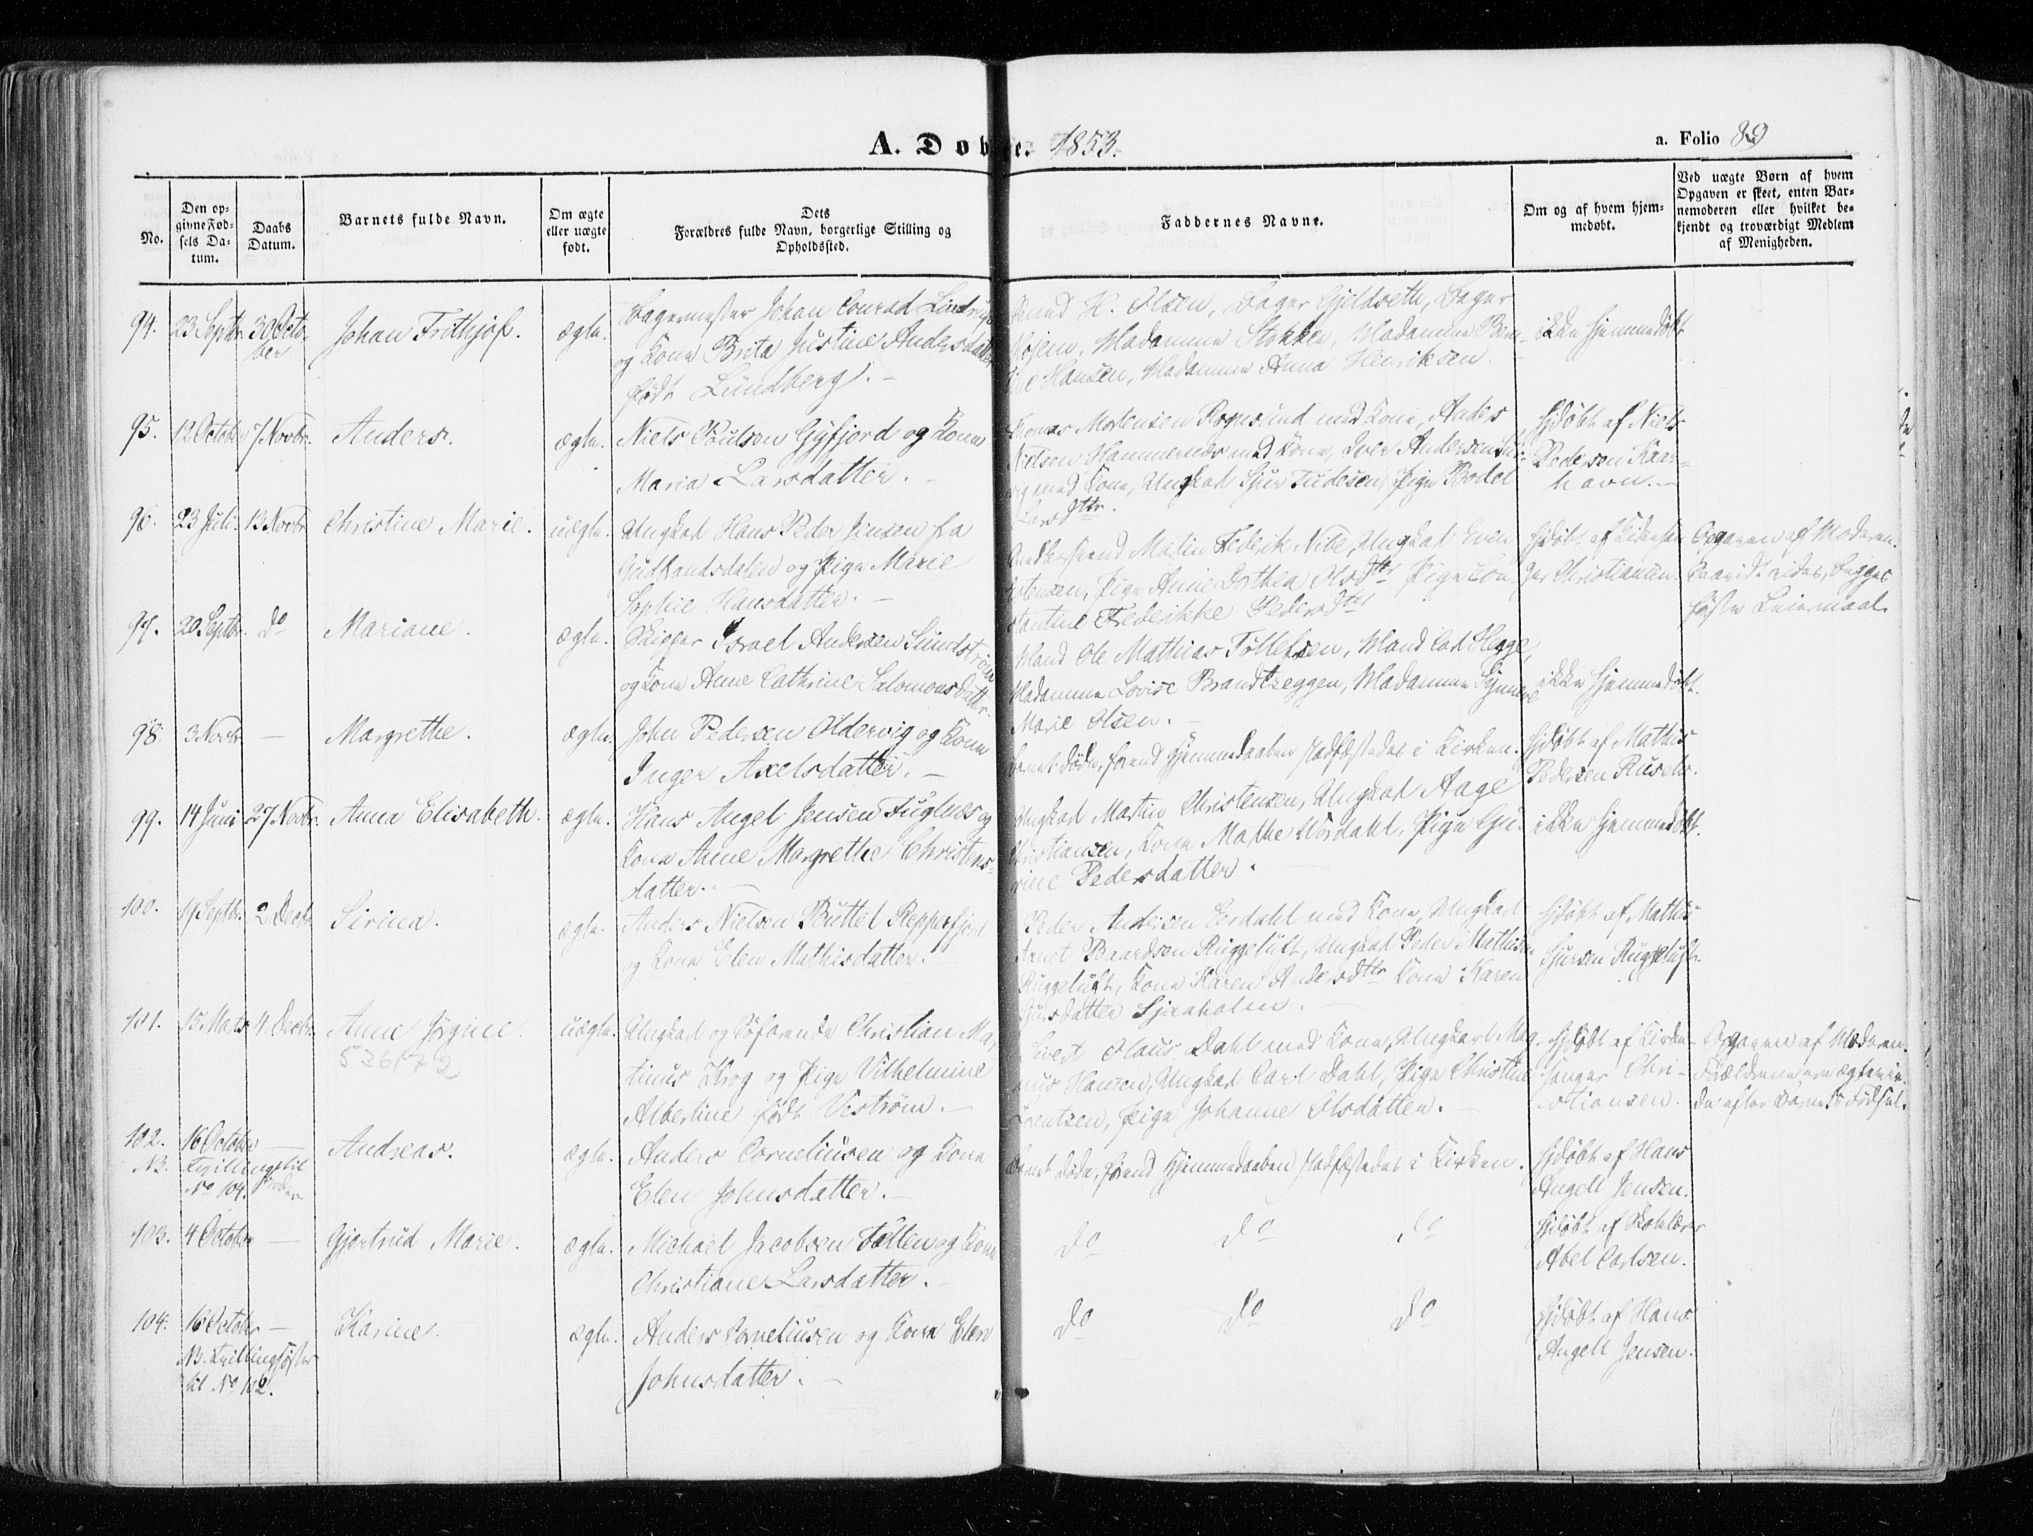 A. Døbte. 1853.
a. Folio 89
No.
Den op-
givne Fød-
sels Da-
tum.
Daabs
Datum.
Barnets fulde Navn.
Om ægte
eller uægte
født.
Dets
Forældres fulde Navn, borgerlige Stilling og
Opholdssted.
Faddernes Navne.
Om og af hvem hjem-
medøbt.
Ved uægte Børn af hvem
Opgaven er skeet, enten Bar-
nemoderen eller hvilket be-
kjendt og troværdigt Medlem
af Menigheden.
94. 23 Septbr. 30 Octo-
ber
Johan Frithjof.
ægte.
Bagermester Johan Conrad
og Kone Brita Justine Andersdatter
født Lündberg. -
H. Olsen, Bager Gjeldseth, Bager
Madamme Stokke, Madamme
Hansen, Madamme Anna Henriksen.
ikke hjemmedøbt
95. 12 October 7. Novbr.
Anders.
ægte.
Niels Poulsen Gyfjord og Kone
Maria Larsdatter. -
Mortensen med Kone, Anders
Nielsen Hammernes med Kone, Iver Andersen
med Kone, Ungkarl Sjur Pige
Larsdttr.
hjdøbt af Niels
Pedersen Kaa-
havn. -
96. 23 Juli. 13 Novbr.
Christine Marie.
uægte.
Ungkarl Hans Peder Jensen fra
Gudbrandsdalen og Pige Marie
Sophie Hansdatter. -
Matin Frederik Ungkarl Even
Pige Anne Dorthea Olsdttr Pige Con-
stantine Frederikke Pedersdttr
hjdøbt af Kirkesan-
ger Christiansen.
Opgaven af Moderen.
begges
første Leiermaal.
97. 20 Septbr. do
Mariane.
ægte.
Skipper Israel Andersen Sundstrøm
og Kone Anne Cathrine Salomonsdatter.
Mand Ole Mathias Mand Carl Hegge,
Madamme Lovise Brandtzeggen, Madamme
Marie Olsen. -
ikke hjemmedøbt.
98. 3 Novbr. -
Margrethe.
ægte.
John Pedersen Oldervig og Kone
Inger Axelsdatter. -
Barnet døde, førend Hjemmedaaben stadfæstedes i Kirken.
hjdøbt af Mathis
Pedersen
99. 14 Juni 27 Novbr.
Anna Elisabeth.
ægte.
Hans Angel Jensen Fuglnes og
Kone Anne Margrethe Christens-
datter. -
Ungkarl Martin Christensen, Ungkarl Aage
Christiansen, Kone Mathe Pige
Pedersdatter.
ikke hjemmedøbt.
100. 19 Septbr. 2 Decbr.
Sirina.
ægte.
Anders Nielsen Repperfjord
og Kone Elen Mathisdatter. -
Peder Andersen med Kone, Ungkarl
Arnet Baardsen Ruggeluft, Ungkarl Peder Mathisen
Ruggeluft, Kone Karen Andersdttr Kone Karen
Sjaaholm. -
hjdøbt af Mathis
Sjursen Ruggeluft.
101. 15 Marts 4. Decbr.
Anne Jørgine.
536/72
uægte.
Ungkarl og Søfarende Christian Mar-
tinus Krog og Pige Vilhelmine
Albertine født Vestrøm. -
Olaus Dahl med Kone, Ungkarl Mag-
nus Hansen, Ungkarl Carl Dahl, Pige Christine
Lorentsen, Pige Johanne Olsdatter. -
hjdøbt af Kirke-
sanger Chri-
stiansen.
Opgaven af Moderen.
Forældrene ere ægtevie-
de efter Barnets Fødsel.
102. 16 October -
NB. Tvillingbroder til
No 104.
Andreas.
ægte.
Anders Corneliusen og Kone
Elen Johnsdatter. -
Barnet døde, førend Hjemmedaaben stadfæstedes i Kirken.
hjdøbt af Hans
Angell Jensen.
103. 4 October -
Gjertrud Marie.
ægte.
Michael Jacobsen og Kone
Christiane Larsdatter. -
do do do
hjdøbt af Skolelærer
Abel Carlsen.
104. 16 October -
NB. Tvillingsøster
til No 102.
Karine.
ægte.
Anders Corneliusen og Kone Elen
Johnsdatter. -
do do do
hjdøbt af Hans
Angell Jensen.